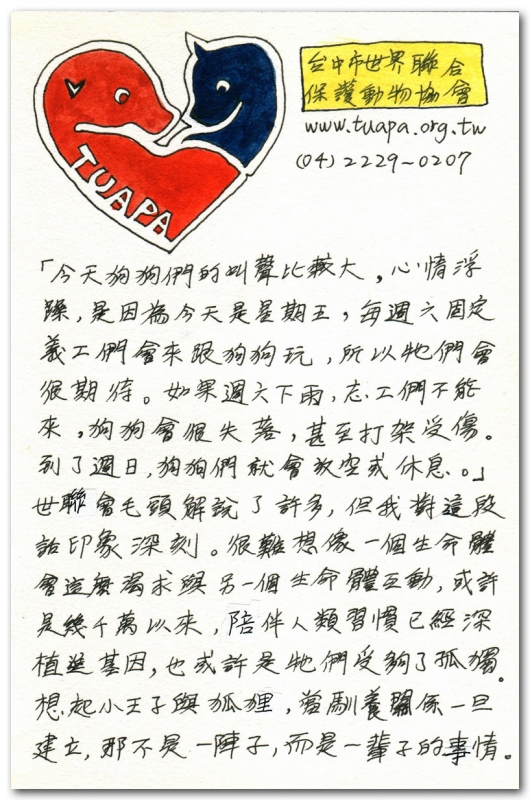 TUAPA
台中市世界聯合
保護動物協會
www.tuapa.org.tw
(04)2229-0207
「今天狗狗們的叫聲比較大，心情浮
躁，是因為今天是星期五，每週六固定
義工們會來跟狗狗玩，所以牠們會
很期待。如果週六下雨，志工們不能
來，狗狗會很失落，甚至打架受傷。
到了週日，狗狗們就會放空或休息。」
世聯會毛頭解說了許多，但我對這段
話印象深刻。很難想像一個生命體
會這麼渴求與另一個生命體互動，或許
是幾千萬以來，陪伴人類習慣已經深
植進基因，也或許是牠們受夠了孤獨。
想起小王子與狐狸，當馴養關係一旦
建立，那不是一陣子，而是一輩子的事情。